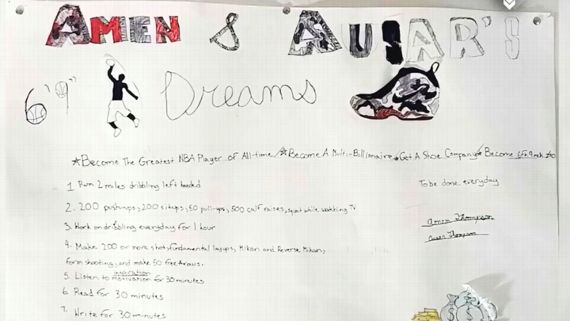 AMEN & AUSAR'S
6'9" Dreams
★Become The Greatest NBA Player of All-time/★Become A Multi-Billionaire★Get A Shoe Company★Become
1. Run 2 miles dribbling left handed
To be done everyday
2. 200 pushups, 200 situps, 50 pull-ups, 500 calf raises, squat while watching TV
3. Work on dribbling everyday for 1 hour
Amen Thompson
Ausar Thompson
4. Make 200 or more shots, fundamental layups, Mikan and Reverse Mikan,
form shooting, and make 50 free throws.
5. Listen to motivation for 30 minutes
inspiration
6. Read for 30 minutes
7. Write for 30 minutes